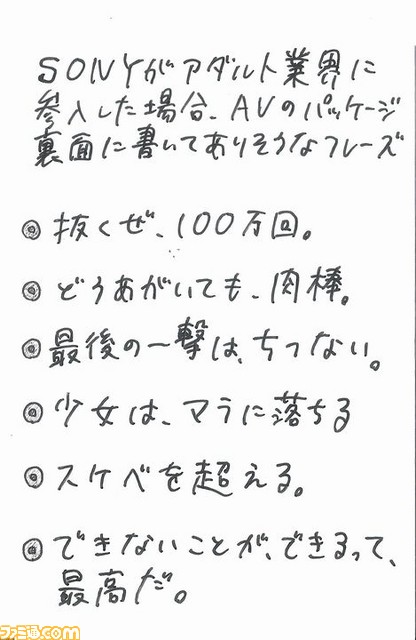 SONYがアダルト業界に
参入した場合、AVのパッケージ
裏面に書いてありそうなフレーズ
◎ 抜くぜ、100万回。
◎ どうあがいても、肉棒。
◎ 最後の一撃は、ちつない。
◎ 少女は、マラに落ちる
◎ スケベを超える。
◎ できないことが、できるって、
最高だ。
ファミ通.com